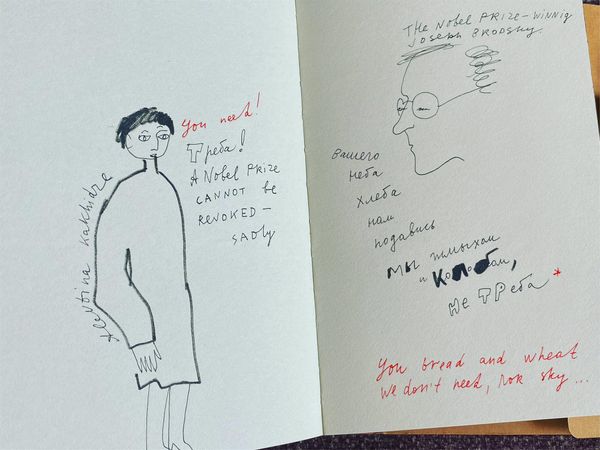 Alevtina Kakhidze
You need!
Треба!
A Nobel Prize
cannot be
revoked –
sadly
The Nobel Prize-winnig
Joseph Brodsky.
Вашего
неба
хлеба
нам
подавись
мы жмыхом
и
не треба *
You bread and wheat
we don't need, nor sky ...